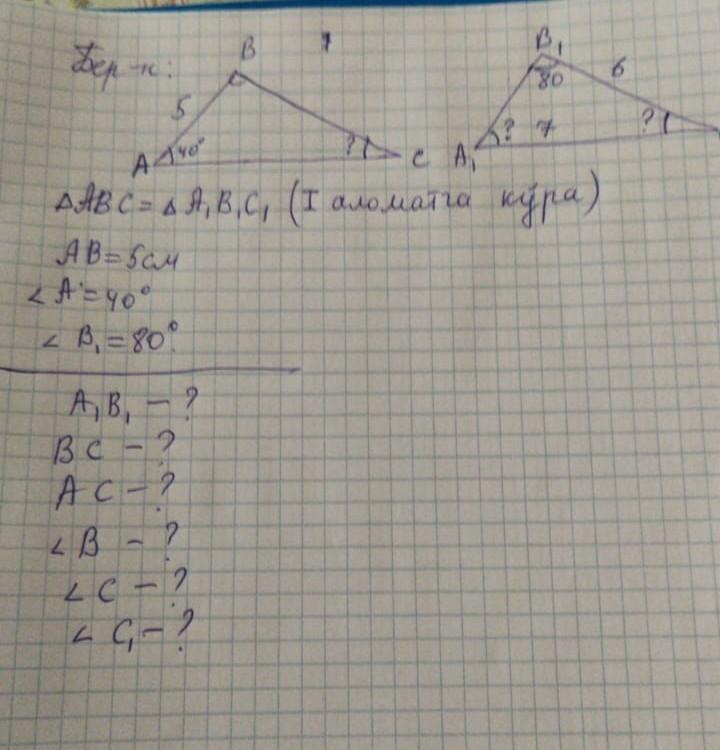 Бер-н:
B
5
A 40° ? C
B₁
80 6
A₁ ? 7 ?
△ABC = △A₁B₁C₁ (I аломатга кўра)
AB = 5см
∠A = 40°
∠B₁ = 80°
A₁B₁ - ?
BC - ?
AC - ?
∠B - ?
∠C - ?
∠C₁ - ?